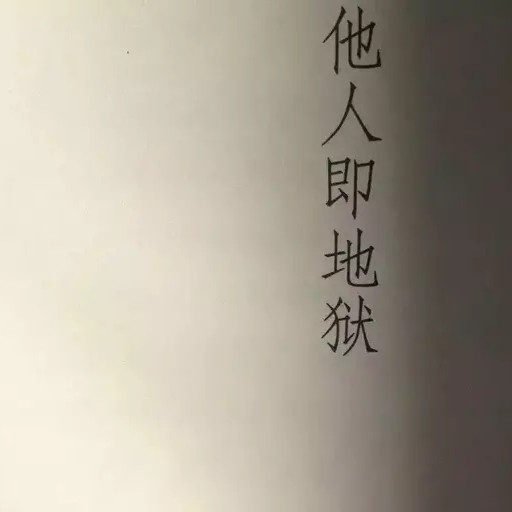 他人即地狱